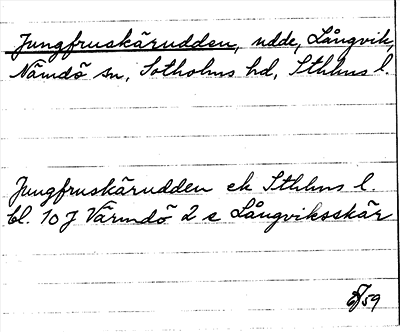 Jungfruskärudden, udde, Långvik,
Nämdö sn, Sotholms hd, Sthlms l.
Jungfruskärudden ek Sthlms l.
bl. 10 J Värmdö 2 s Långviksskär
59